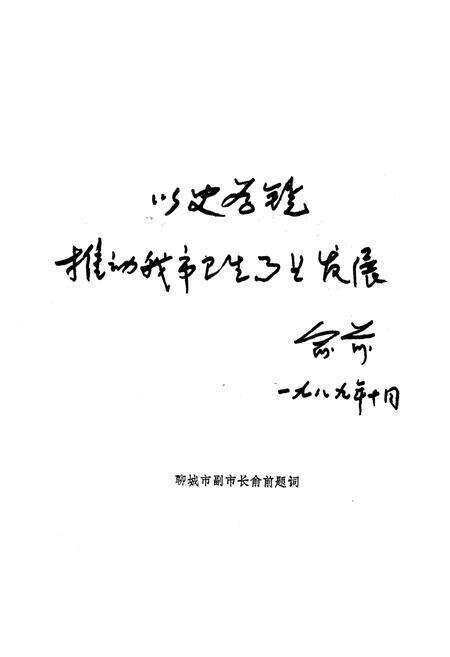 以史为镜
推动我市卫生事业发展
俞前
一九八九年十月
聊城市副市长俞前题词